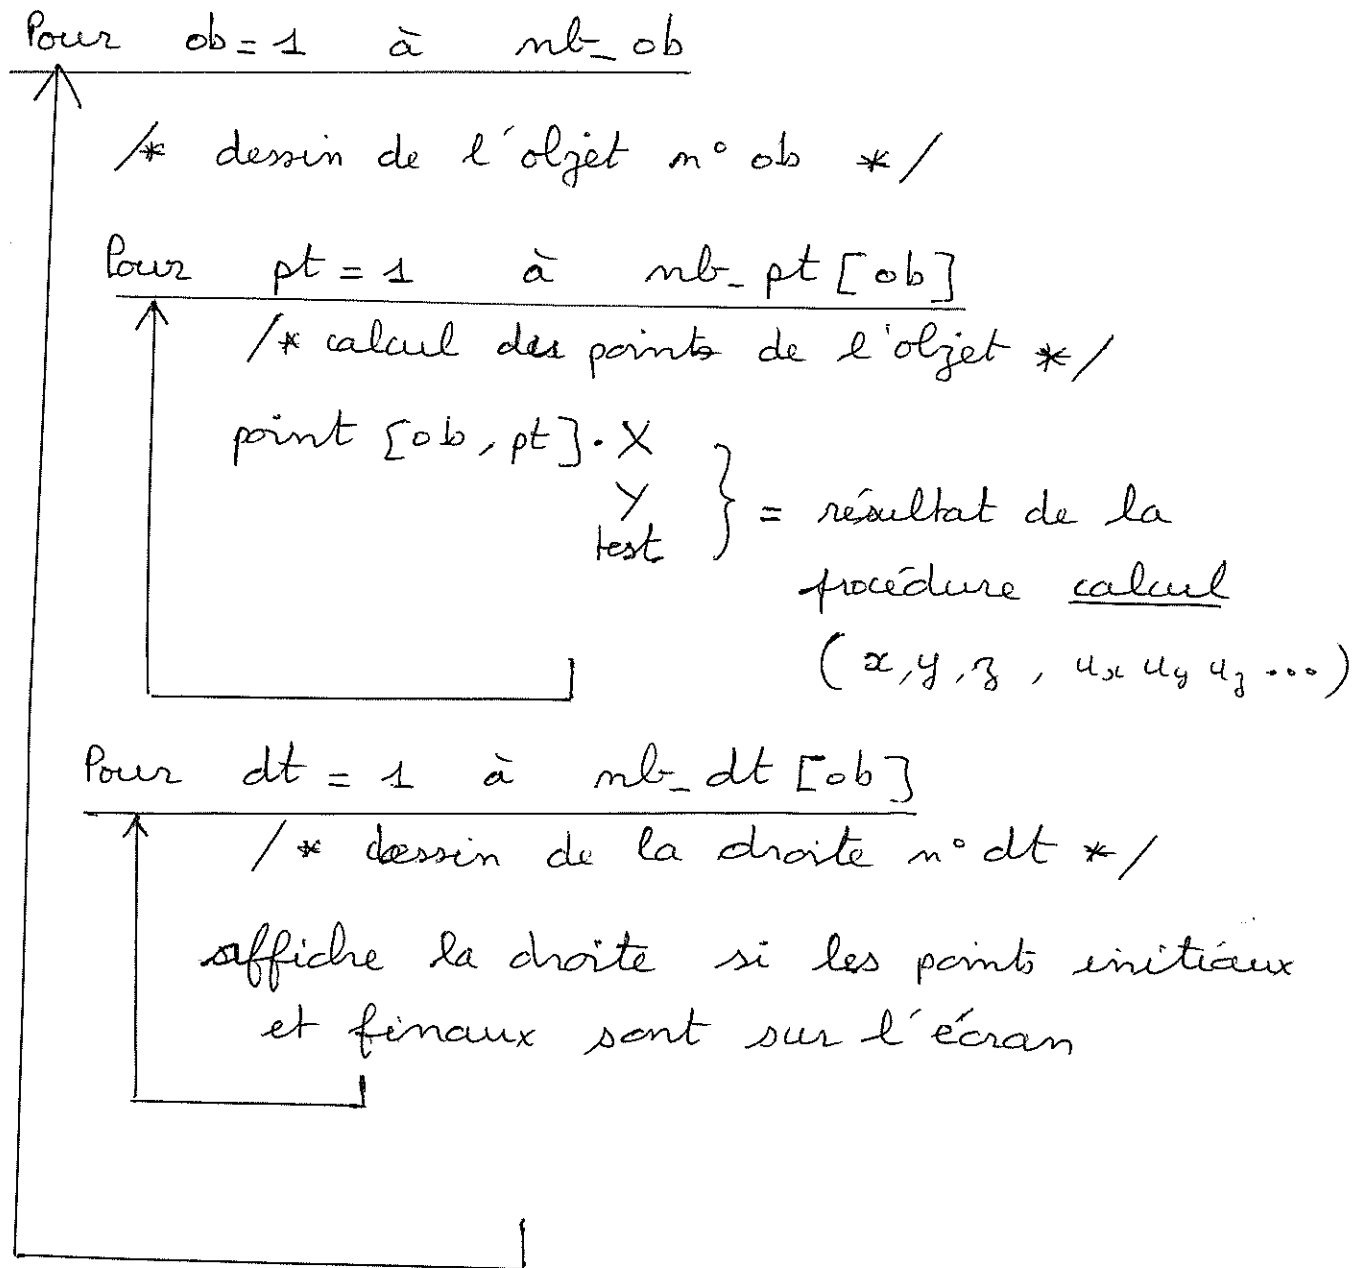 Pour ob = 1 à nb_ob
/* dessin de l'objet n° ob */
Pour pt = 1 à nb_pt [ob]
/* calcul des points de l'objet */
point [ob, pt] . X
Y
test
} = résultat de la
procédure calcul
(x, y, z, ux uy uz ...)
Pour dt = 1 à nb_dt [ob]
/* dessin de la droite n° dt */
affiche la droite si les points initiaux
et finaux sont sur l'écran